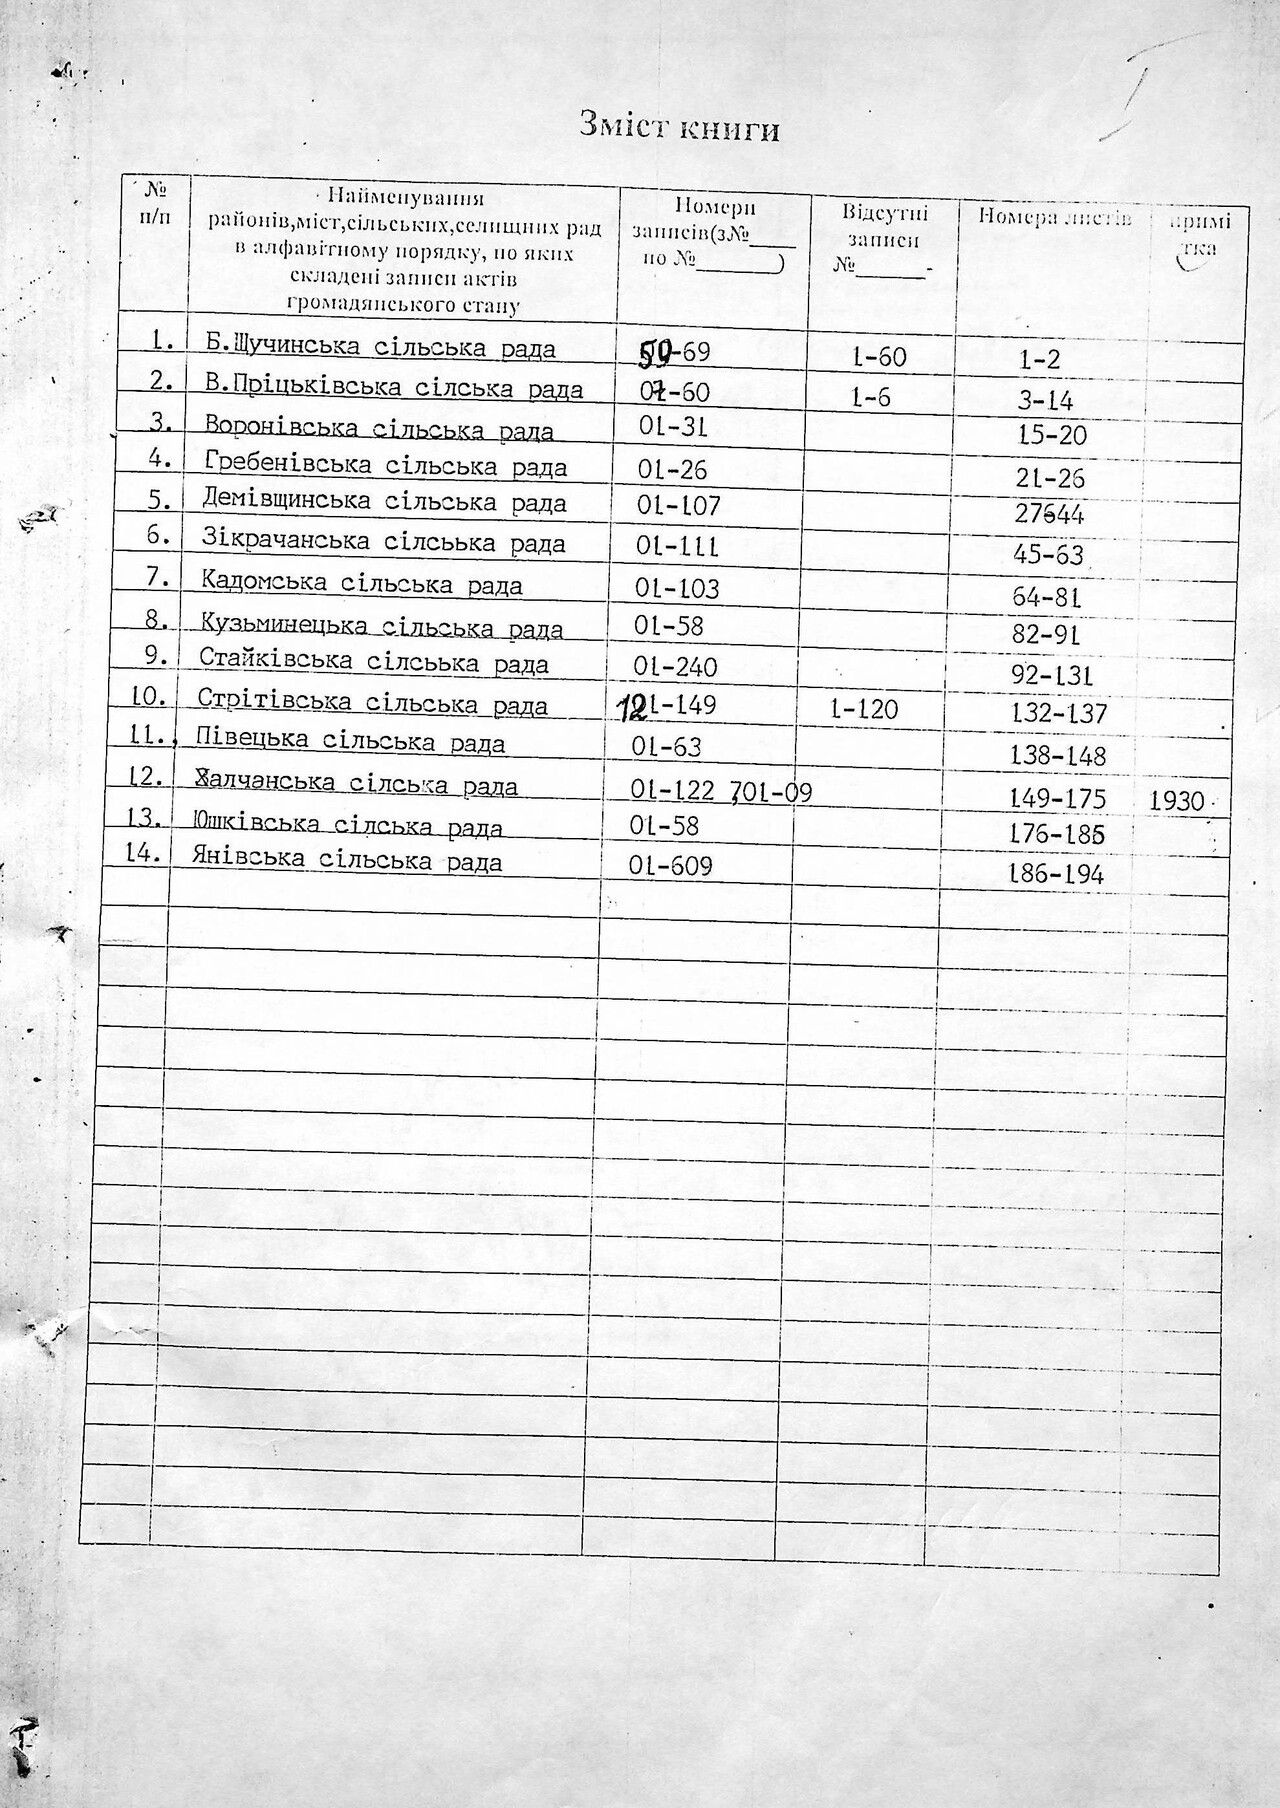 Зміст книги
№ п/п
Найменування районів,міст,сільських,селищних рад в алфавітному порядку, по яких складені записи актів громадянського стану
Номери записів(з№____ по №_______)
Відсутні записи №______-
Номера листів
примі тка
1. Б.Щучинська сільська рада 50-69 1-60 1-2
2. В.Пріцьківська сілська рада 07-60 1-6 3-14
3. Воронівська сільська рада 01-31 15-20
4. Гребенівська сільська рада 01-26 21-26
5. Демівщинська сільська рада 01-107 27644
6. Зікрачанська сілсьька рада 01-111 45-63
7. Кадомська сільська рада 01-103 64-81
8. Кузьминецька сільська рада 01-58 82-91
9. Стайківська сілсьька рада 01-240 92-131
10. Стрітівська сільська рада 121-149 1-120 132-137
11. Півецька сільська рада 01-63 138-148
12. Халчанська сілська рада 01-122 701-09 149-175 1930
13. Юшківська сілська рада 01-58 176-185
14. Янівська сільська рада 01-609 186-194